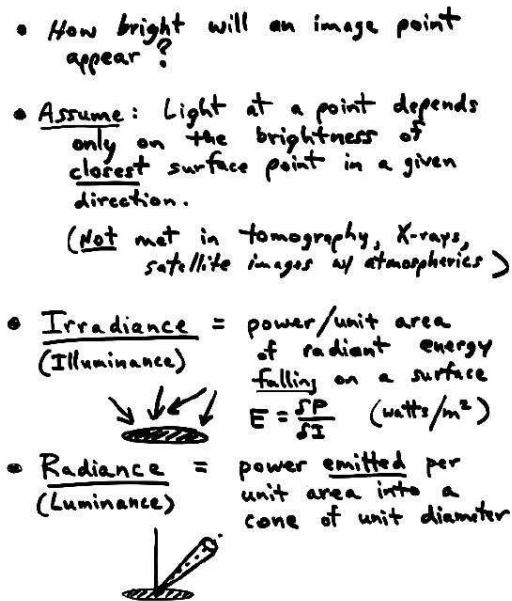 • How bright will an image point
appear?
• Assume: Light at a point depends
only on the brightness of
closest surface point in a given
direction.
(Not met in tomography, X-rays,
satellite images w/ atmospherics)
• Irradiance = power/unit area
(Illuminance) of radiant energy
falling on a surface
E = δP/δI (watts/m²)
• Radiance = power emitted per
(Luminance) unit area into a
cone of unit diameter